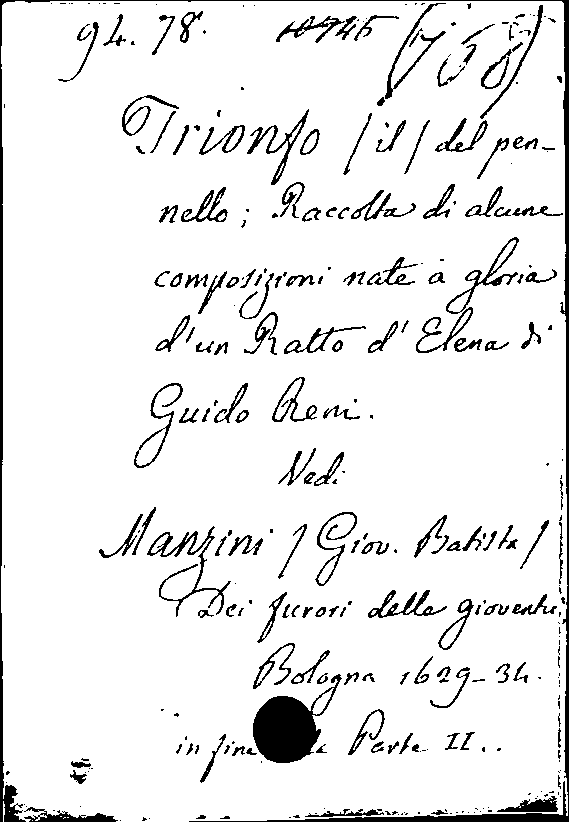 94. 78. 10745 (768)
Trionfo / il / del pen-
nello ; Raccolta di alcune
composizioni nate a gloria
d'un Ratto d' Elena di
Guido Reni.
Vedi
Manzini / Giov. Batista /
Dei furori della gioventù.
Bologna 1629-34.
in fine Parte II..